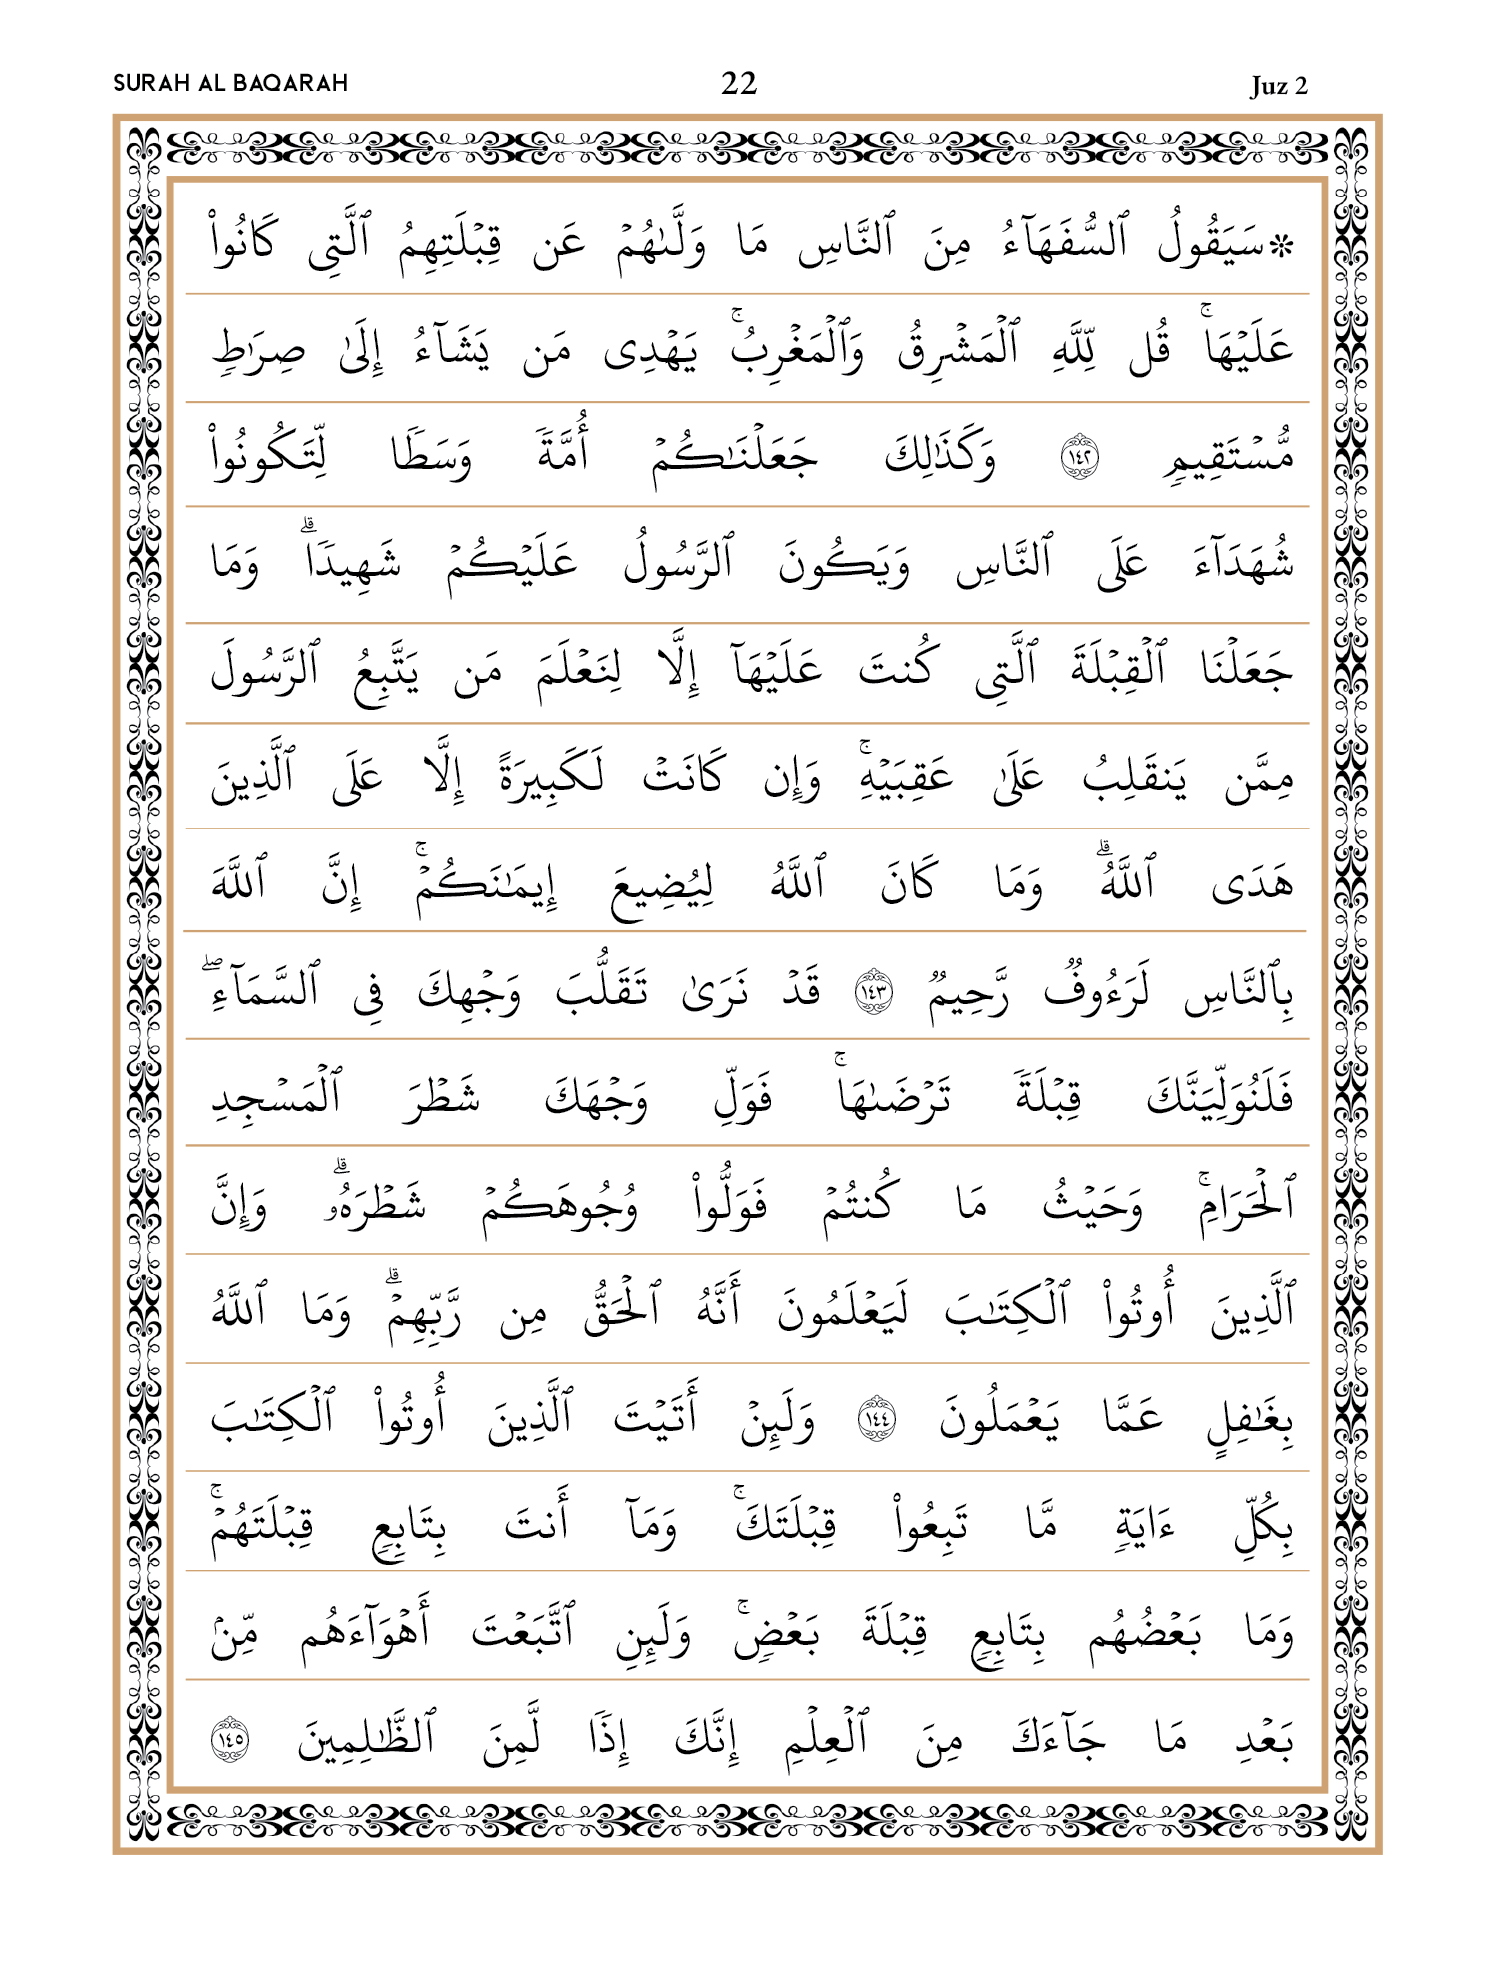 SURAH AL BAQARAH 22 Juz 2
۞سَيَقُولُ ٱلسُّفَهَآءُ مِنَ ٱلنَّاسِ مَا وَلَّىٰهُمۡ عَن قِبۡلَتِهِمُ ٱلَّتِي كَانُواْ
عَلَيۡهَاۚ قُل لِّلَّهِ ٱلۡمَشۡرِقُ وَٱلۡمَغۡرِبُۚ يَهۡدِي مَن يَشَآءُ إِلَىٰ صِرَٰطٖ
مُّسۡتَقِيمٖ ١٤٢ وَكَذَٰلِكَ جَعَلۡنَٰكُمۡ أُمَّةٗ وَسَطٗا لِّتَكُونُواْ
شُهَدَآءَ عَلَى ٱلنَّاسِ وَيَكُونَ ٱلرَّسُولُ عَلَيۡكُمۡ شَهِيدٗاۗ وَمَا
جَعَلۡنَا ٱلۡقِبۡلَةَ ٱلَّتِي كُنتَ عَلَيۡهَآ إِلَّا لِنَعۡلَمَ مَن يَتَّبِعُ ٱلرَّسُولَ
مِمَّن يَنقَلِبُ عَلَىٰ عَقِبَيۡهِۚ وَإِن كَانَتۡ لَكَبِيرَةً إِلَّا عَلَى ٱلَّذِينَ
هَدَى ٱللَّهُۗ وَمَا كَانَ ٱللَّهُ لِيُضِيعَ إِيمَٰنَكُمۡۚ إِنَّ ٱللَّهَ
بِٱلنَّاسِ لَرَءُوفٞ رَّحِيمٞ ١٤٣ قَدۡ نَرَىٰ تَقَلُّبَ وَجۡهِكَ فِي ٱلسَّمَآءِۖ
فَلَنُوَلِّيَنَّكَ قِبۡلَةٗ تَرۡضَىٰهَاۚ فَوَلِّ وَجۡهَكَ شَطۡرَ ٱلۡمَسۡجِدِ
ٱلۡحَرَامِۚ وَحَيۡثُ مَا كُنتُمۡ فَوَلُّواْ وُجُوهَكُمۡ شَطۡرَهُۥۗ وَإِنَّ
ٱلَّذِينَ أُوتُواْ ٱلۡكِتَٰبَ لَيَعۡلَمُونَ أَنَّهُ ٱلۡحَقُّ مِن رَّبِّهِمۡۗ وَمَا ٱللَّهُ
بِغَٰفِلٍ عَمَّا يَعۡمَلُونَ ١٤٤ وَلَئِنۡ أَتَيۡتَ ٱلَّذِينَ أُوتُواْ ٱلۡكِتَٰبَ
بِكُلِّ ءَايَةٖ مَّا تَبِعُواْ قِبۡلَتَكَۚ وَمَآ أَنتَ بِتَابِعٖ قِبۡلَتَهُمۡۚ
وَمَا بَعۡضُهُم بِتَابِعٖ قِبۡلَةَ بَعۡضٖۚ وَلَئِنِ ٱتَّبَعۡتَ أَهۡوَآءَهُم مِّنۢ
بَعۡدِ مَا جَآءَكَ مِنَ ٱلۡعِلۡمِ إِنَّكَ إِذٗا لَّمِنَ ٱلظَّٰلِمِينَ ١٤٥